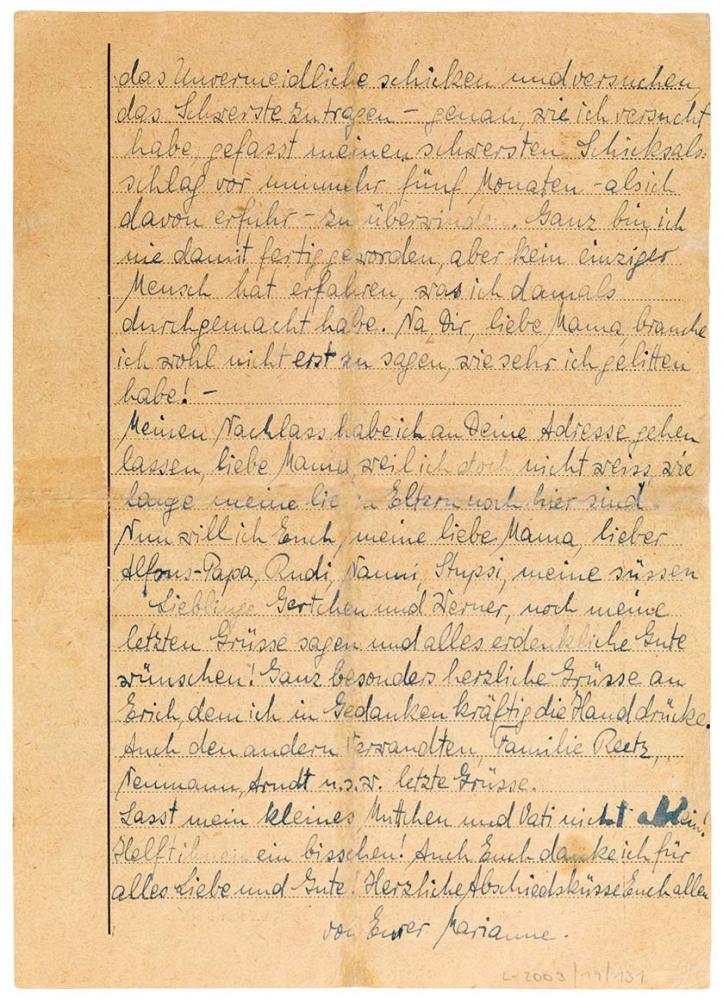 das Unvermeidliche schicken und versuchen,
das Schwerste zu tragen – genau, wie ich versucht
habe, gefasst meinen schwersten Schicksals-
schlag vor nunmehr fünf Monaten – als ich
davon erfuhr – zu überwinden. Ganz bin ich
nie damit fertiggeworden, aber kein einziger
Mensch hat erfahren, was ich damals
durchgemacht habe. Na Dir, liebe Mama, brauche
ich wohl nicht erst zu sagen, wie sehr ich gelitten
habe! –
Meinen Nachlass habe ich an Deine Adresse gehen
lassen, liebe Mama, weil ich doch nicht weiss, wie
lange meine lieben Eltern noch hier sind.
Nun will ich Euch, meine liebe Mama, lieber
Alfons-Papa, Rudi, Nanni, Stupsi, meine süssen
Lieblinge Gertchen und Werner, noch meine
letzten Grüsse sagen und alles erdenkliche Gute
wünschen! Ganz besonders herzliche Grüsse an
Erich, dem ich in Gedanken kräftig die Hand drücke.
Auch den andern Verwandten, Familie Reetz,
Neumann, Arndt u.s.w. letzte Grüsse.
Lasst mein kleines Muttchen und Vati nicht allein!
Helft ihnen ein bisschen! Auch Euch danke ich für
alles Liebe und Gute! Herzliche Abschiedsküsse Euch allen
von Eurer Marianne.
L-2003/11/131